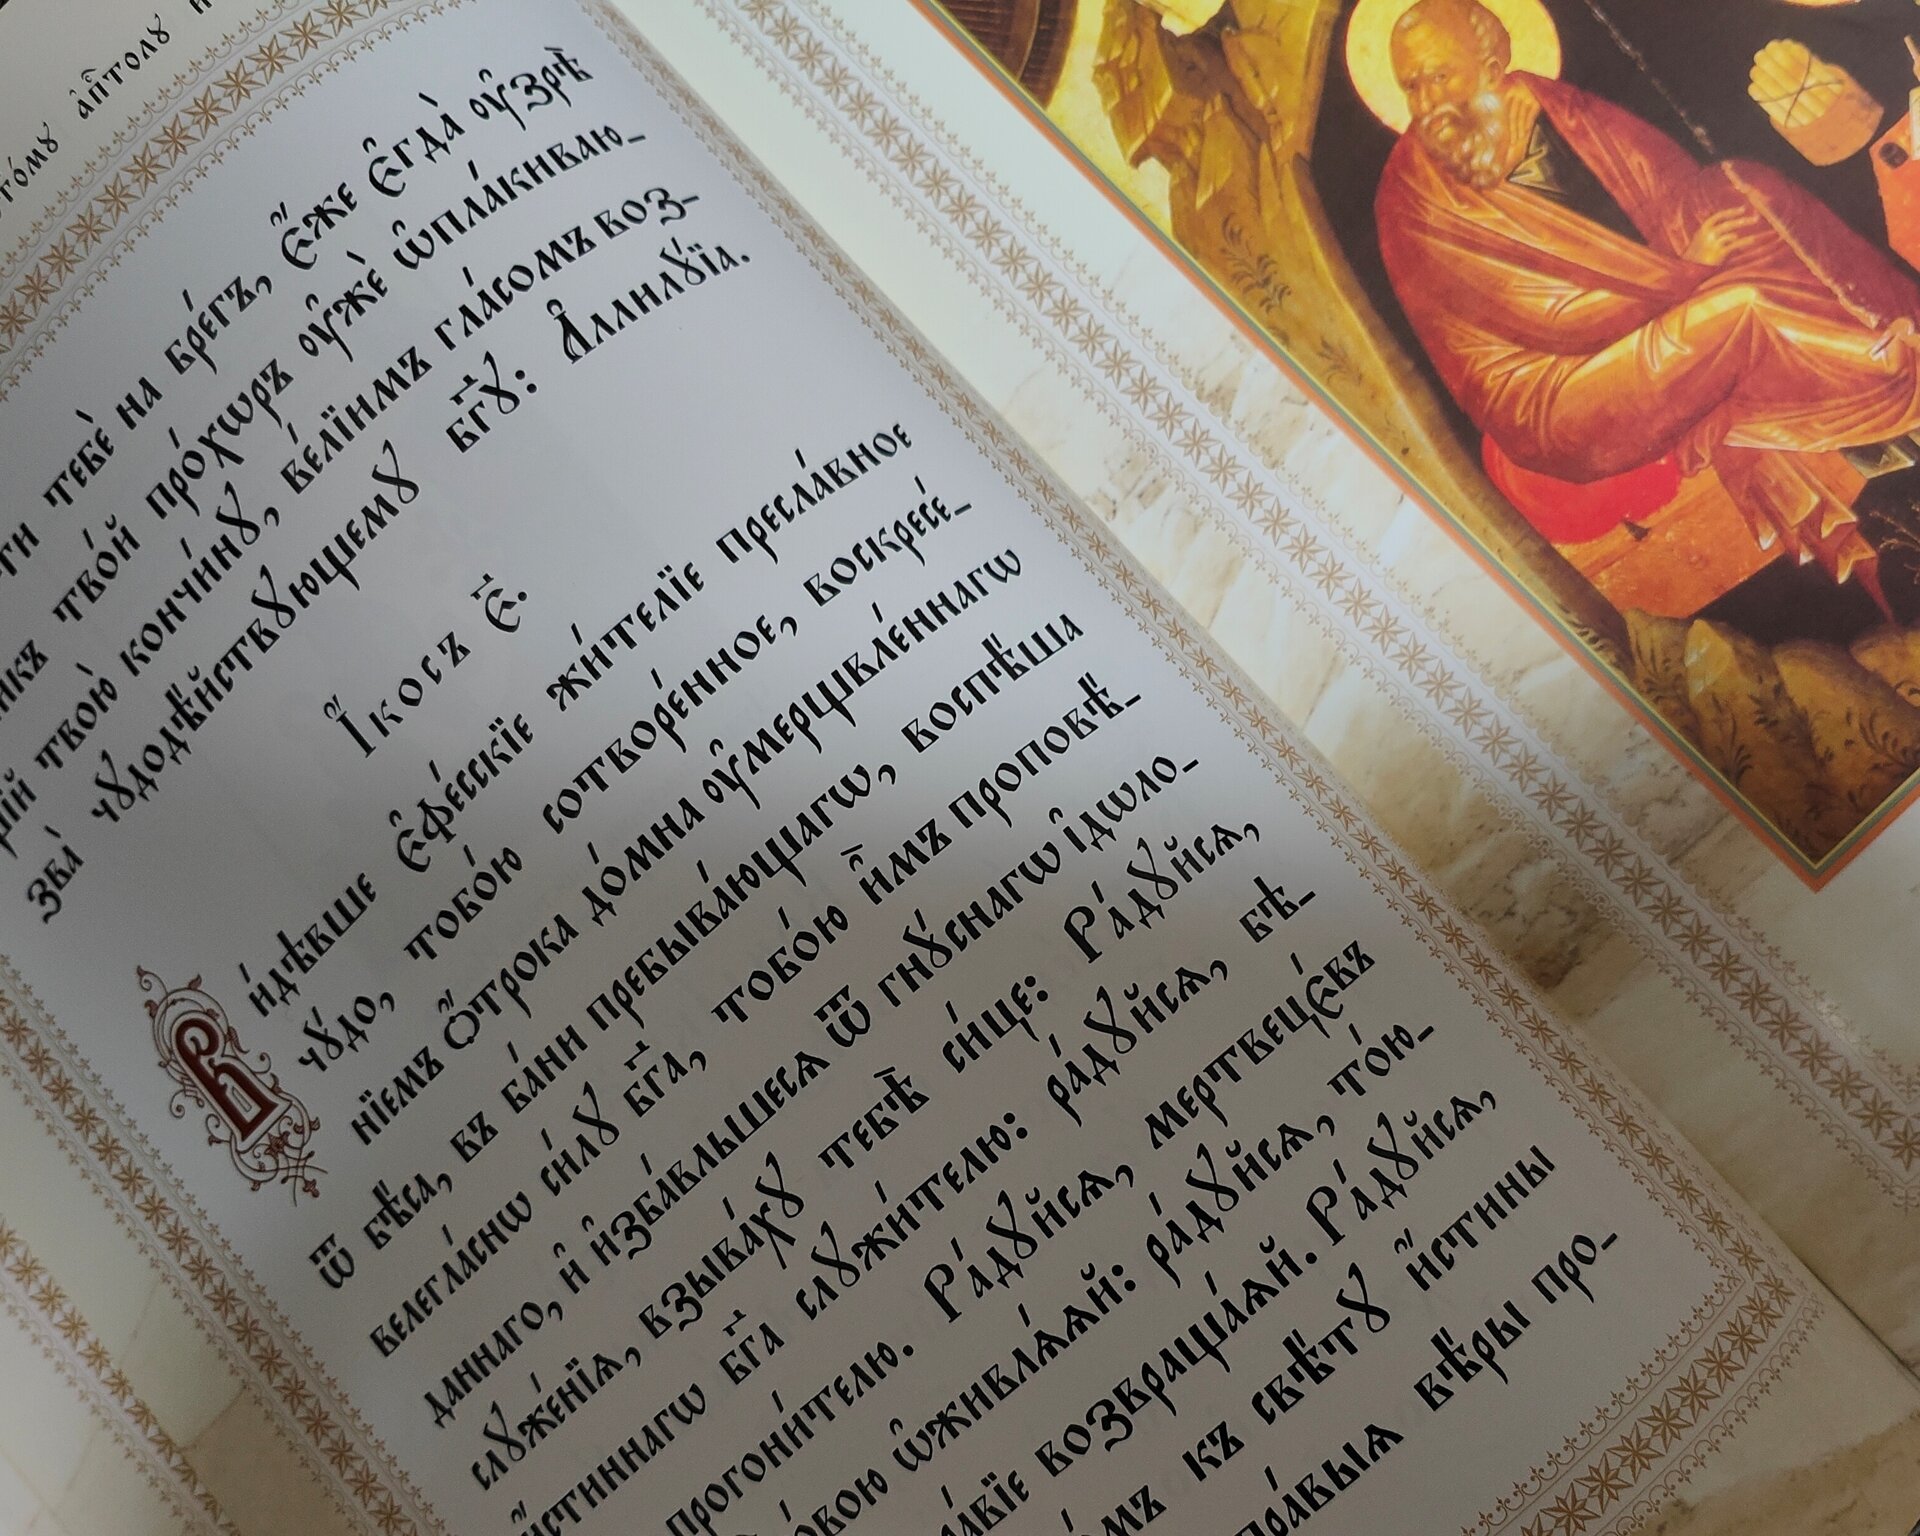 а҆пⷭ҇толꙋ
тебѐ на бре́гъ, є҆́же є҆гда̀ ᲂу҆зрѣ̀
тво́й про́хѡръ ᲂу҆жѐ ѡ҆пла́киваю-
твою̀ кончи́нꙋ, ве́лїимъ гла́сомъ воз-
зва̀ чꙋдодѣ́йствꙋющемꙋ бг҃ꙋ: А҆ллилꙋ́їа.
І҆́косъ є҃.
Ви́дѣвше є҆фе́сскїе жи́телїе пресла́вное
чꙋ́до, тобо́ю сотворе́нное, воскресе́-
нїемъ ѻ҆́трока до́мна ᲂу҆мерщвле́ннагѡ
ѿ бѣ́са, въ ба́ни пребыва́ющагѡ, воспѣ́ша
велегла́снѡ си́лꙋ бг҃а, тобо́ю и҆̀мъ проповѣ́-
даннаго, и҆ и҆зба́вльшесѧ ѿ гнꙋ́снагѡ і҆дѡло-
слꙋже́нїѧ, взыва́хꙋ тебѣ̀ си́це: Ра́дꙋйсѧ,
и҆́стиннагѡ бг҃а слꙋжи́телю: ра́дꙋйсѧ, бѣ-
прогони́телю. Ра́дꙋйсѧ, мертвецє́въ
ѡ҆живлѧ́ѧй: ра́дꙋйсѧ, то́ю-
возвраща́ѧй. Ра́дꙋйсѧ,
къ свѣ́тꙋ и҆́стины
пра́выѧ вѣ́ры про-